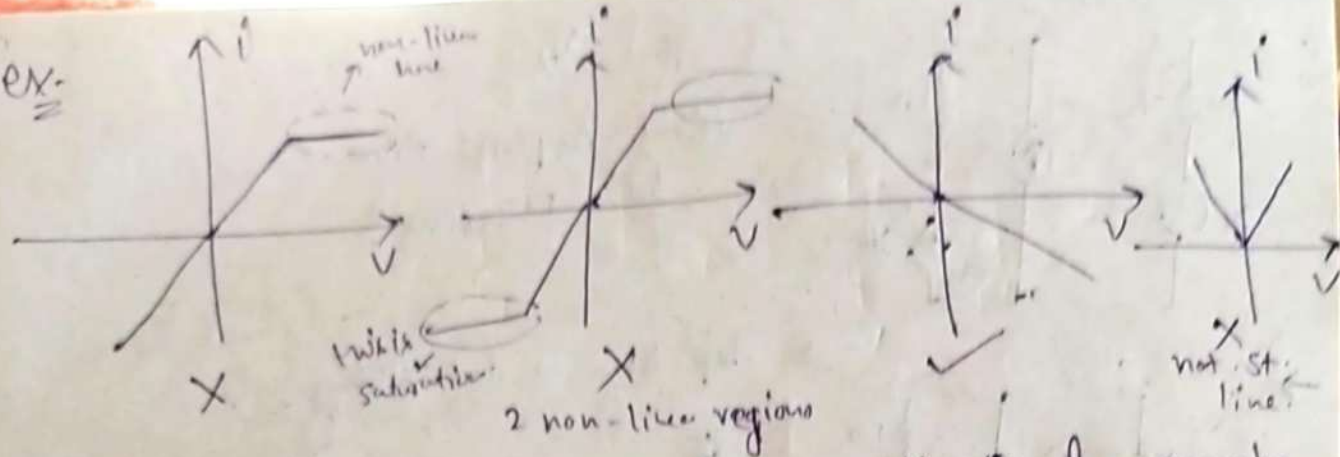 ex:-
i
non-linear
line
v
X
i
v
this is
saturation
X
2 non-linear regions
i
v
✓
i
v
X
not st.
line